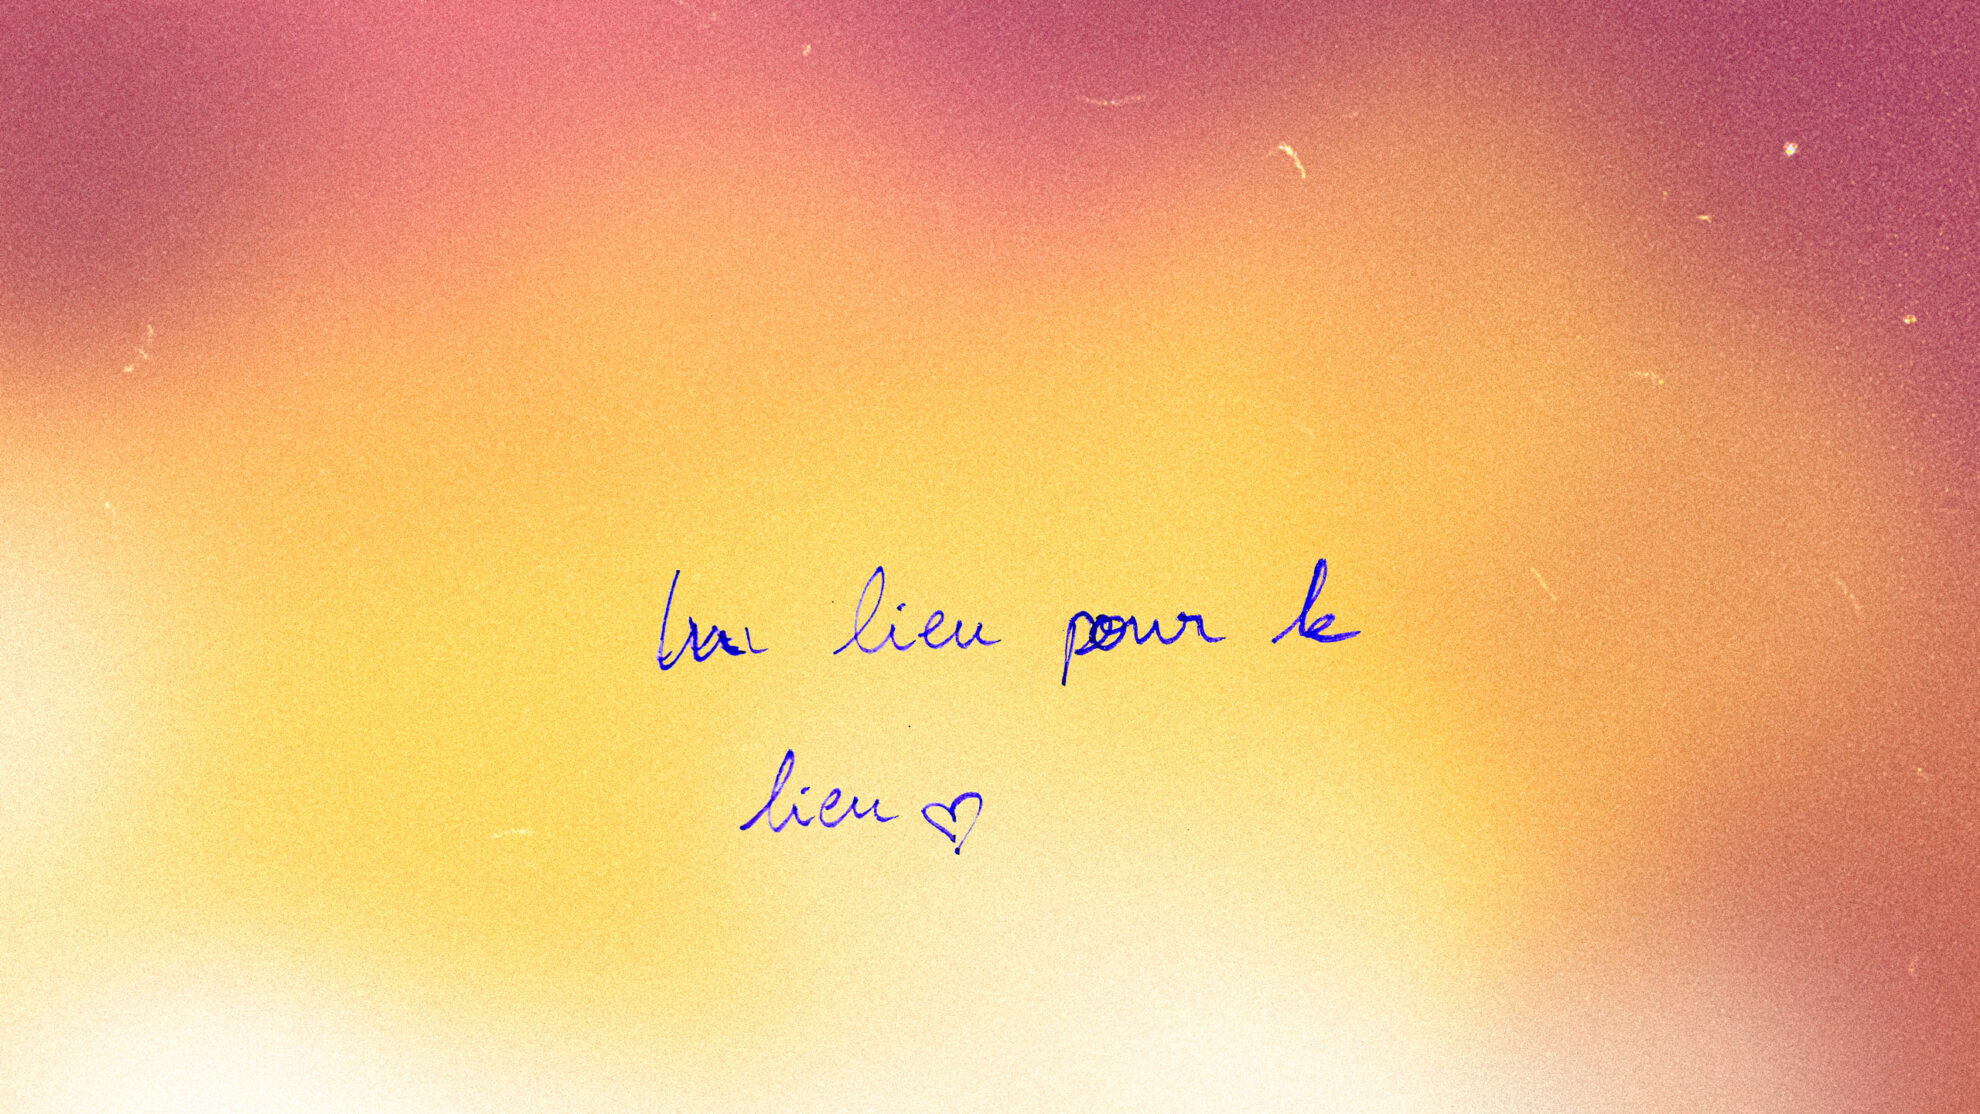 lieu pour le
lieu ♡